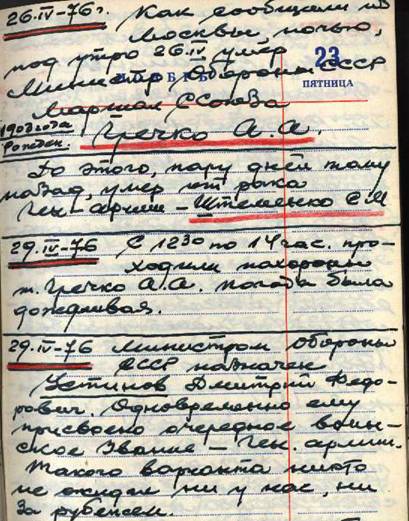 26.IV-76г. Как сообщили из
Москвы, ночью,
под утро 26.IV умер
23
НОЯБРЬ
ПЯТНИЦА
Министр Обороны СССР
Маршал С Союза
1903 года
Рожден.
Гречко А. А.
До этого, пару дней тому
назад, умер от рака
Ген-армии - Штеменко С М
29.IV-76 С 12 30 по 14 час. про-
ходили похороны
т. Гречко А.А. погода была
дождливая.
29.IV-76 Министром Обороны
СССР назначен
Устинов Дмитрий Федо-
рович. Одновременно ему
присвоено очередное воин-
ское Звание - Ген. армии.
Такого варианта никто
не ожидал ни у нас, ни
за рубежом.